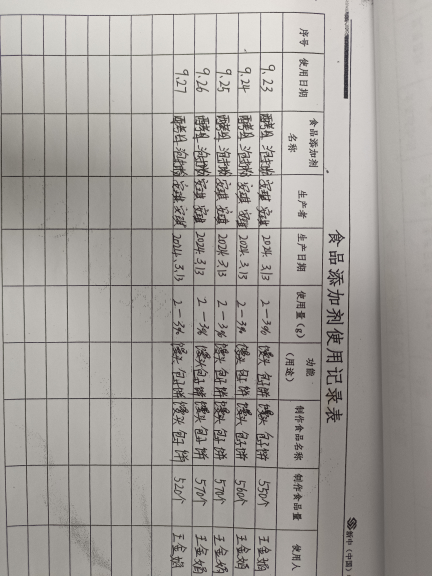 新中(中国)
食品添加剂使用记录表
序号 使用日期 食品添加剂名称 生产者 生产日期 使用量(g) 功能(用途) 制作食品名称 制作食品量 使用人
9.23 酵母 泡打粉 安琪 安琪 2024.3.13 2-3% 馒头 包子 饼 馒头 包子 饼 550个 王金娟
9.24 酵母 泡打粉 安琪 安琪 2024.3.13 2-3% 馒头 包子 饼 馒头 包子 饼 560个 王金娟
9.25 酵母 泡打粉 安琪 安琪 2024.3.13 2-3% 馒头 包子 饼 馒头 包子 饼 570个 王金娟
9.26 酵母 泡打粉 安琪 安琪 2024.3.13 2-3% 馒头 包子 饼 馒头 包子 饼 570个 王金娟
9.27 酵母 泡打粉 安琪 安琪 2024.3.13 2-3% 馒头 包子 饼 馒头 包子 饼 520个 王金娟